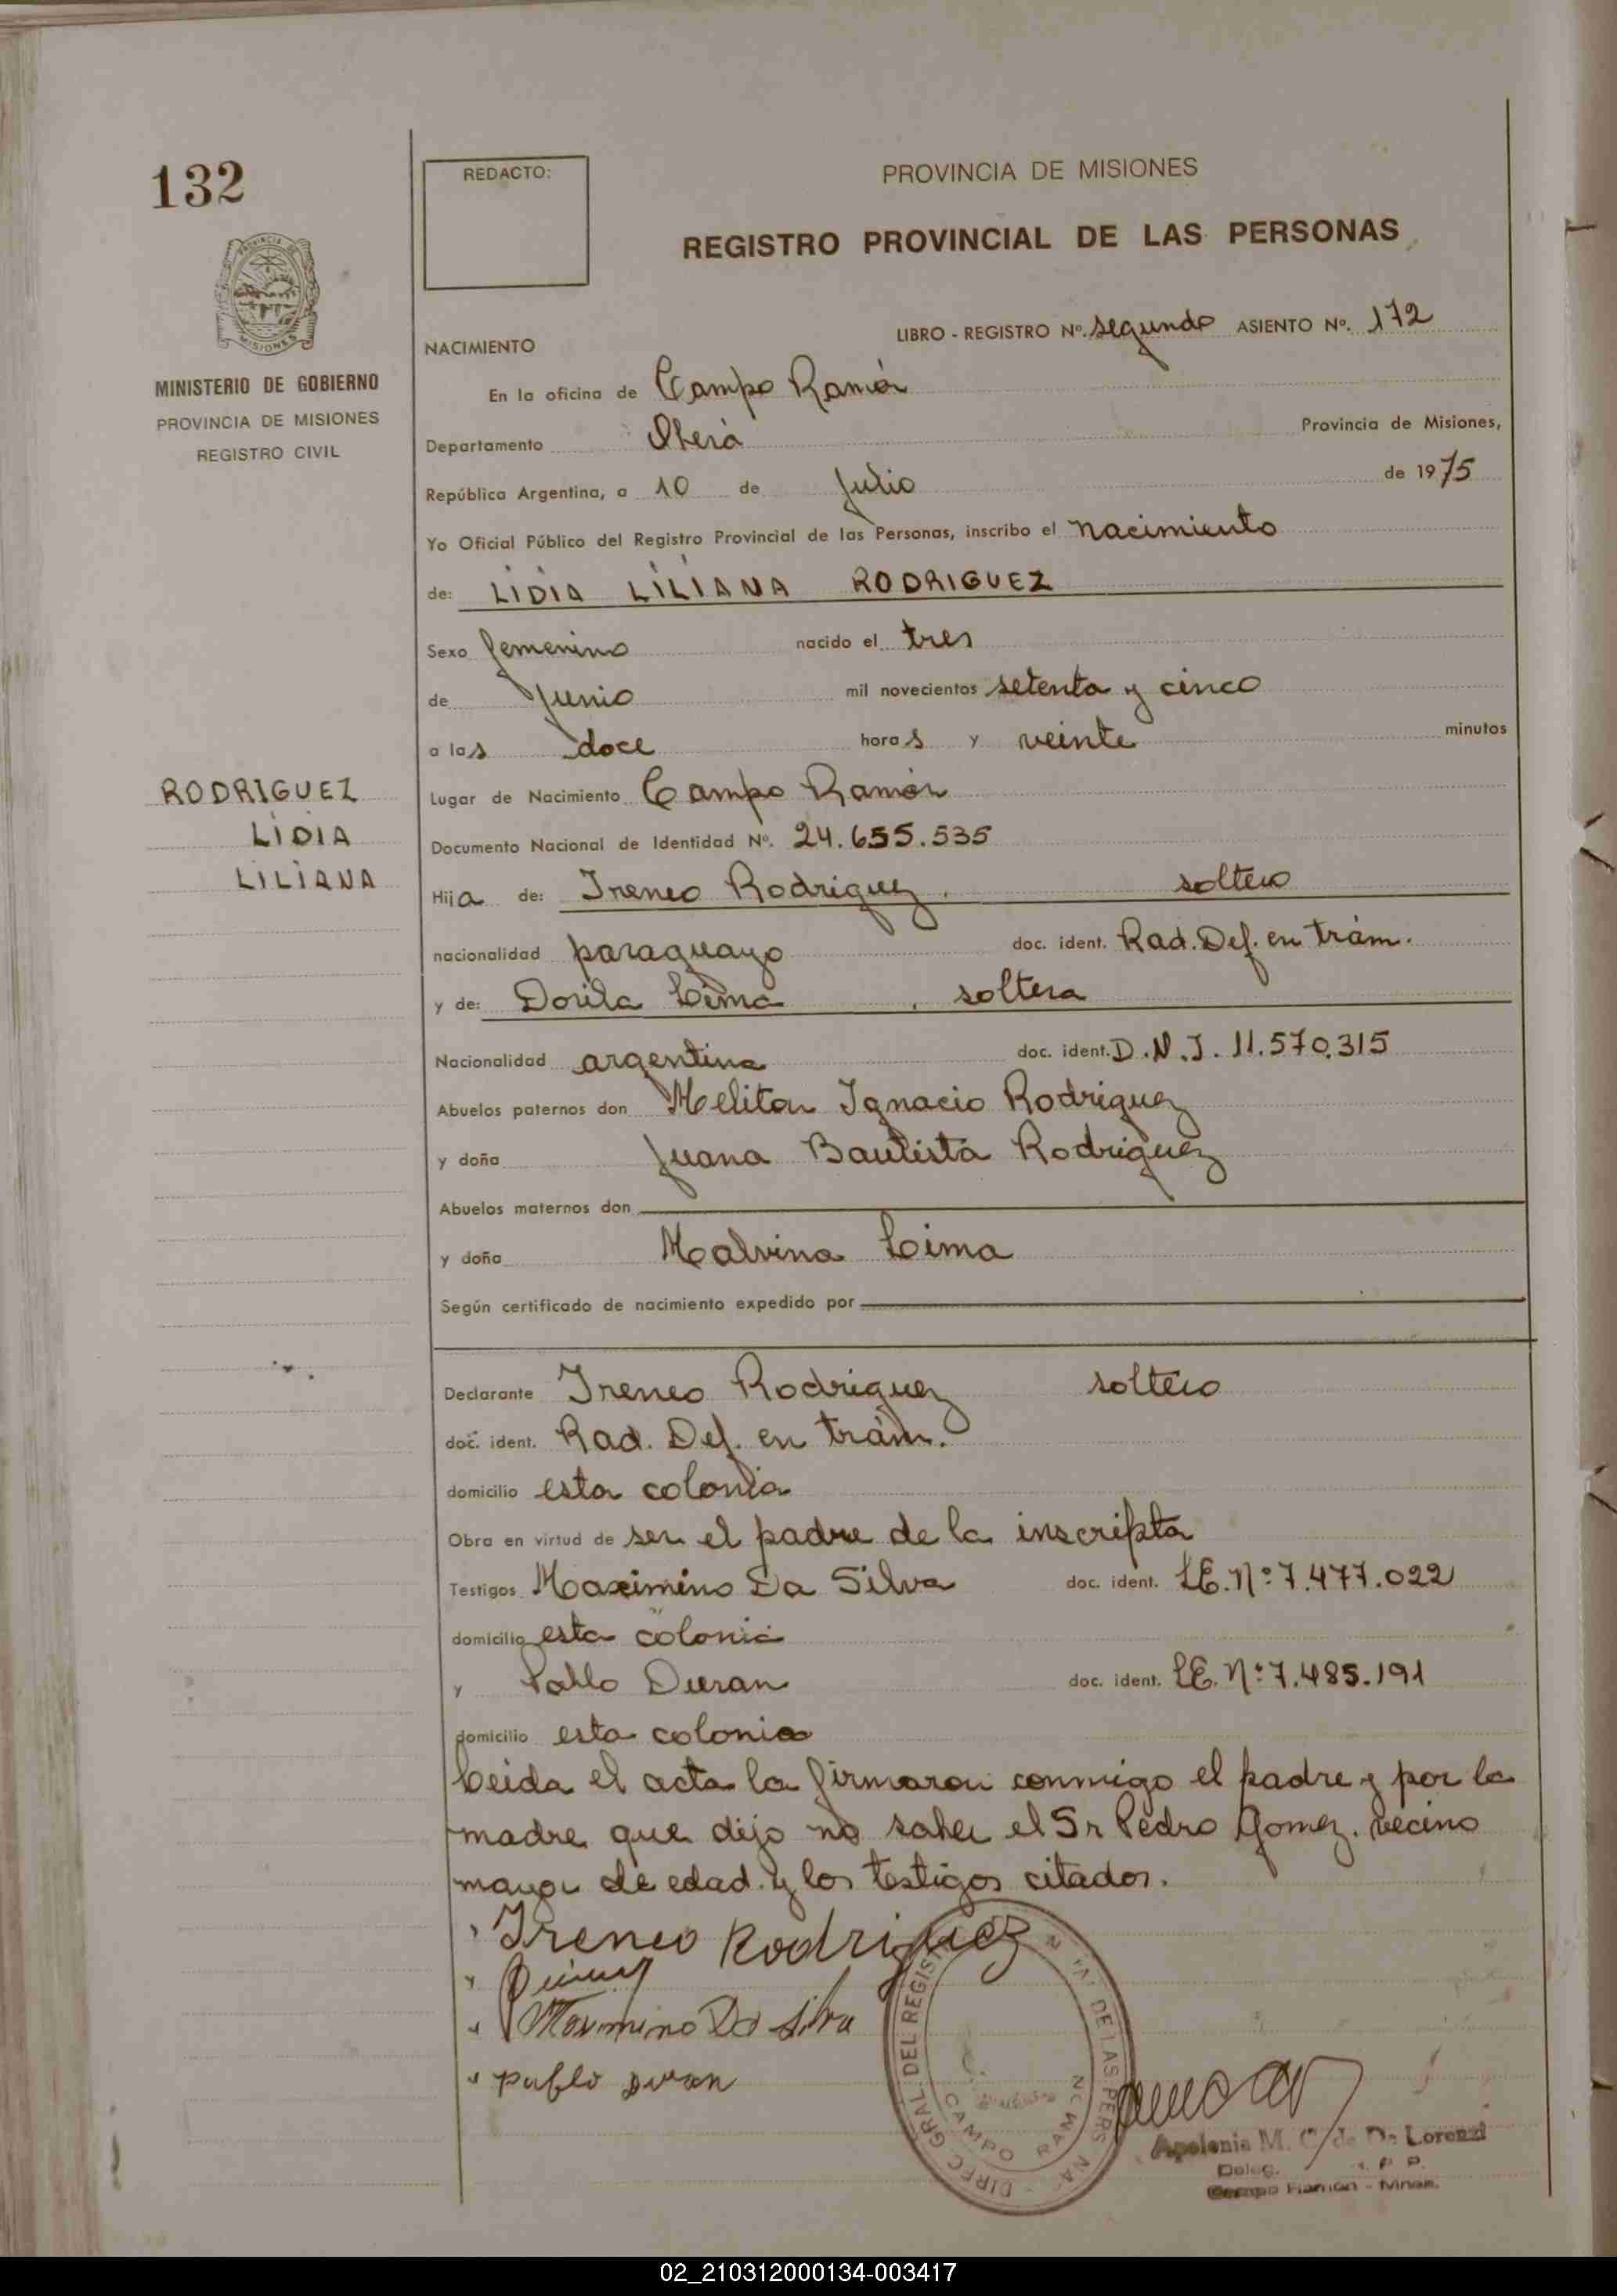 132
REDACTO:
PROVINCIA DE MISIONES
REGISTRO PROVINCIAL DE LAS PERSONAS
PROVINCIA DE
MISIONES
MINISTERIO DE GOBIERNO
PROVINCIA DE MISIONES
REGISTRO CIVIL
LIBRO - REGISTRO Nº. segundo ASIENTO Nº. 172
NACIMIENTO
En la oficina de Campo Ramón
Departamento Oberá Provincia de Misiones,
República Argentina, a 10 de Julio de 1975
Yo Oficial Público del Registro Provincial de las Personas, inscribo el nacimiento
de: LIDIA LILIANA RODRIGUEZ
Sexo femenino nacido el tres
de Junio mil novecientos setenta y cinco
a las doce horas y veinte minutos
RODRIGUEZ
LIDIA
LILIANA
Lugar de Nacimiento Campo Ramón
Documento Nacional de Identidad Nº. 24.655.535
Hija de: Ireneo Rodriguez. soltero
nacionalidad paraguayo doc. ident. Rad. Def. en trám.
y de: Dorila Lima , soltera
Nacionalidad argentina doc. ident. D.N.I. 11.570.315
Abuelos paternos don Meliton Ignacio Rodriguez
y doña Juana Bautista Rodriguez
Abuelos maternos don
y doña Malvina Lima
Según certificado de nacimiento expedido por
Declarante Ireneo Rodriguez soltero
doc. ident. Rad. Def. en trám.
domicilio esta colonia
Obra en virtud de ser el padre de la inscripta
Testigos Maximino Da Silva doc. ident. LE. Nº 7.477.022
domicilio esta colonia
y Pablo Duran doc. ident. LE. Nº 7.485.191
domicilio esta colonia
Leida el acta la firmaron conmigo el padre y por la
madre que dijo no saber el Sr Pedro Gomez. vecino
mayor de edad. y los testigos citados.
Ireneo Rodriguez
Maximino Da Silva
pablo Duran
DIREC. GRAL. DEL REGIST DE LAS PERS
CAMPO RAMON
Apolonia M. C. de De Lorenzi
Deleg.
Campo Ramón - Mnes.
02_210312000134-003417